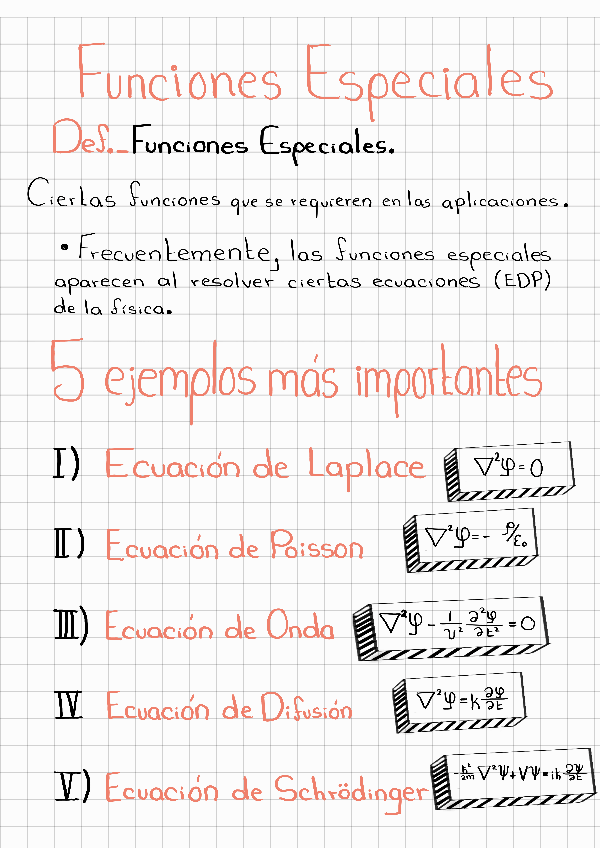 Funciones Especiales
Def._ Funciones Especiales.
Ciertas funciones que se requieren en las aplicaciones.
• Frecuentemente, las funciones especiales
aparecen al resolver ciertas ecuaciones (EDP)
de la física.
5 ejemplos más importantes
I) Ecuación de Laplace ∇²φ = 0
II) Ecuación de Poisson ∇²φ = - ρ/ε₀
III) Ecuación de Onda ∇²φ - 1/v² ∂²φ/∂t² = 0
IV Ecuación de Difusión ∇²φ = k ∂φ/∂t
V) Ecuación de Schrödinger -ħ²/2m ∇²Ψ + VΨ = iħ ∂Ψ/∂t